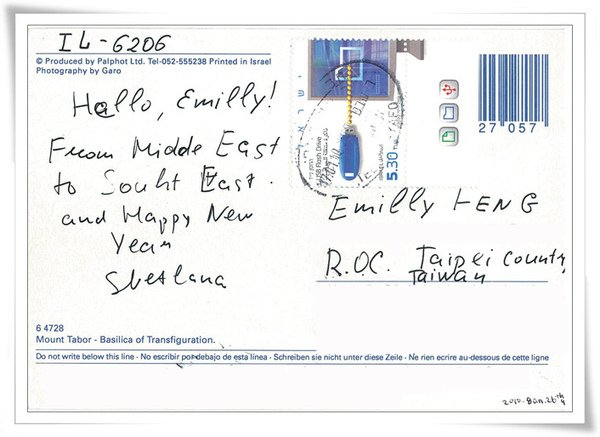 IL-6206
© Produced by Palphot Ltd. Tel-052-555238 Printed in Israel
Photography by Garo
Hallo, Emilly!
From Midde East
to Souht East.
and Happy New
Year
Svetlana
USB Flash Drive
5.30
27 057
Emilly HENG
R.O.C. Taipei County,
Taiwan
6 4728
Mount Tabor - Basilica of Transfiguration.
Do not write below this line · No escribir por debajo de esta línea · Schreiben sie nicht unter diese Zeile · Ne rien ecrire au-dessous de cette ligne